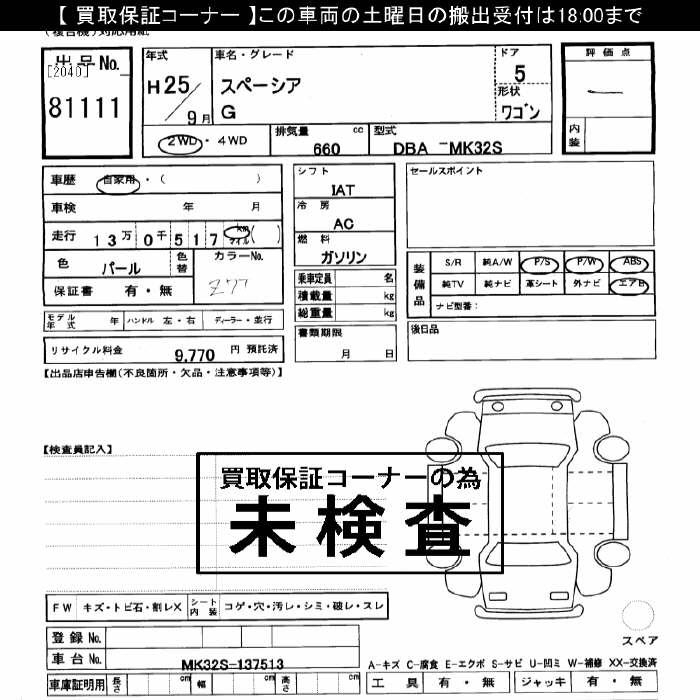 【 買取保証コーナー 】この車両の土曜日の搬出受付は18:00まで
出品No.
[2040]
81111
年式
H25/9月
車名・グレード
スペーシア
G
ドア
5
形状
ワゴン
2WD・4WD
排気量 cc
660
型式
DBA -MK32S
評価点
―
内装
車歴 自家用・( )
車検 年 月
走行 13万0千517 km マイル ( )
色 パール 色替 カラーNo. Z77
保証書 有・無
モデル年式 年 ハンドル 左・右 ディーラー・並行
リサイクル料金 9,770 円 預託済
シフト
IAT
冷房
AC
燃料
ガソリン
乗車定員 名
積載量 kg
総重量 kg
書類期限
月 日
セールスポイント
装備品
S/R 純A/W P/S P/W ABS
純TV 純ナビ 革シート 外ナビ エアB
ナビ型番:
後日品
【出品店申告欄(不良箇所・欠品・注意事項等)】
【検査員記入】
買取保証コーナーの為
未検査
FW キズ・トビ石・割レX シート内装 コゲ・穴・汚レ・シミ・破レ・スレ
登録No.
車台No. MK32S-137513
車庫証明用 長さ cm 幅 cm 高さ cm
スペア
A-キズ C-腐食 E-エクボ S-サビ U-凹ミ W-補修 XX-交換済
工具 有・無 ジャッキ 有・無